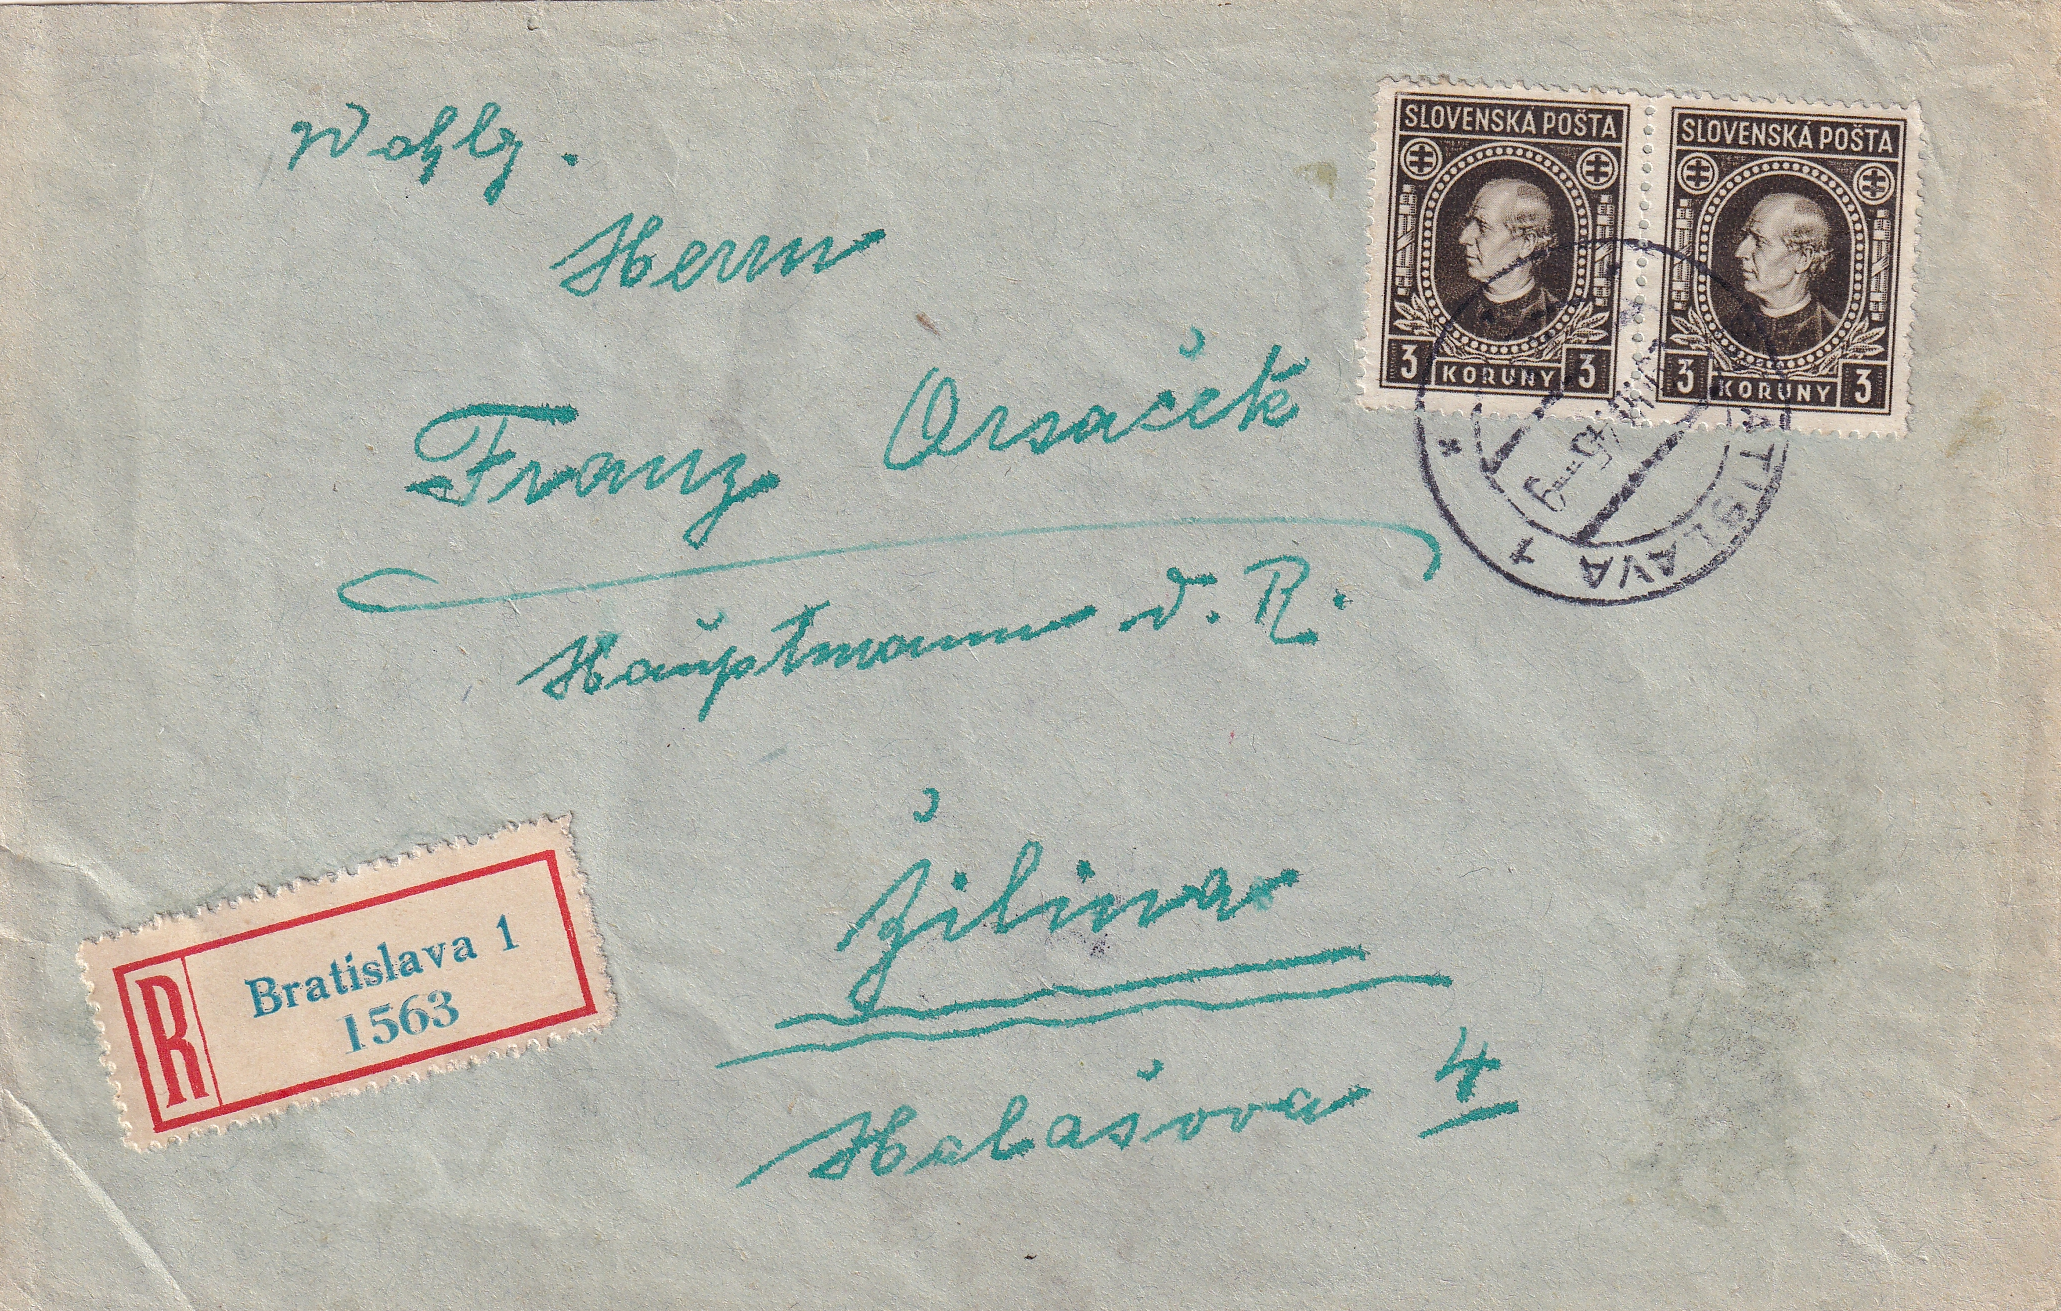 Wohlg.
Herrn
Franz Orsaček
Hauptmann d. R.
Žilina
Halašova 4
SLOVENSKÁ POŠTA
3 KORUNY 3
SLOVENSKÁ POŠTA
3 KORUNY 3
ATISLAVA 1
R
Bratislava 1
1563